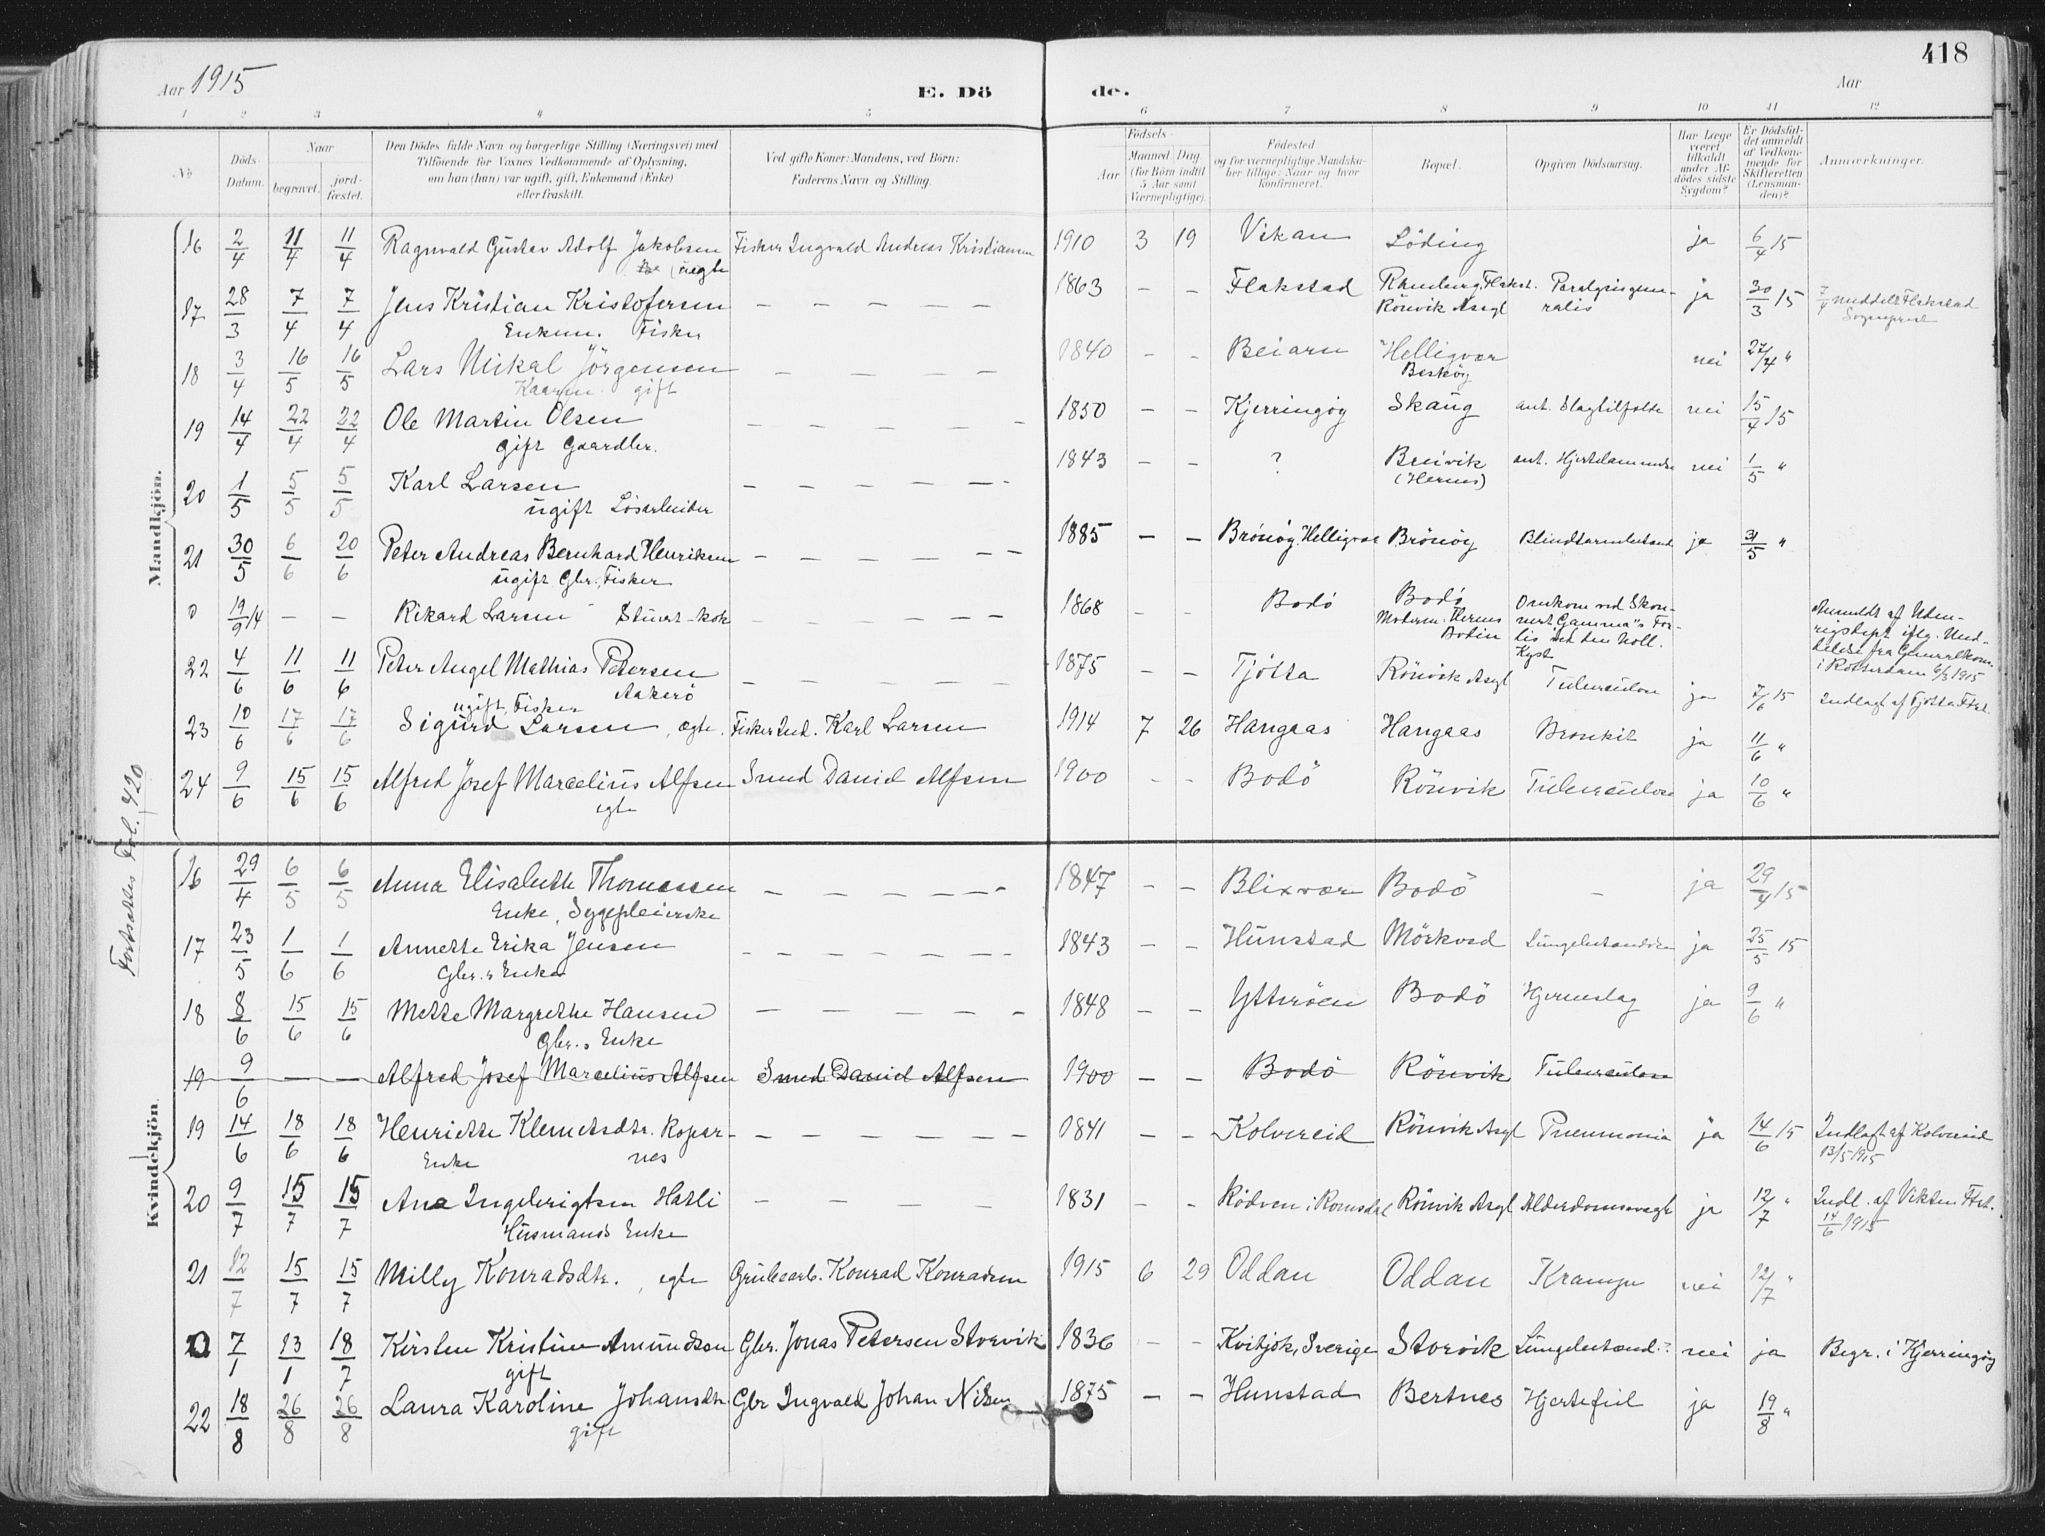 418
Aar 1915
E. Dö
de.
Aar
1 2 3 4 5 6 7 8 9 10 11 12
№
Döds-Datum.
Naar
begravet.
jord-fæstet.
Den Dödes fulde Navn og borgerlige Stilling (Næringsvei) med
Tilföiende for Voxnes Vedkommende af Oplysning,
om han (hun) var ugift, gift, Enkemand (Enke)
eller fraskilt.
Ved gifte Koner: Mandens, ved Börn:
Faderens Navn og Stilling.
Födsels-
Aar
Maaned Dag
(for Börn indtil
5 Aar samt
Værnepligtige).
Födested
og for værnepligtige Mandska-
ber tillige: Naar og hvor
konfirmeret.
Bopæl.
Opgiven Dödsaarsag.
Har Læge
været
tilkaldt
under Af-
dödes sidste
Sygdom?
Er Dödsfal-
det anmeldt
af Vedkom-
mende for
Skifteretten
(Lensman-
den)?
Anmærkninger.
Mandkjön.
16 2/4 11/4 11/4 Ragnvald Gustav Adolf Jakobsen Fisker Ingvald Andreas Kristiansen 1910 3 19 Vikan Löding ja 6/4 15
uegte
17 28/3 7/4 7/4 Jens Kristian Kristofersen — — — — — 1863 — — Flakstad Ramberg, Flakst. Paralysis gene- ja 30/3 15 7/4 meddelt Flakstad
Enkem. Fisker Rönvik Asyl ralis Sogneprest
18 3/4 16/5 16/5 Lars Mikal Jörgensen — — — — — 1840 — — Beiarn Helligvær nei 27/4 "
Kaarm. gift
19 14/4 22/4 22/4 Ole Martin Olsen — — — — — 1850 — — Kjerringöy Skaug ant. Slagtilfælde nei 15/4 15
gift Gaardbr.
20 1/5 5/5 5/5 Karl Larsen — — — — — 1843 — — ? Breivik ant. Hjertelammelse nei 1/5 "
ugift Lösarbeider (Hernes)
21 30/5 6/6 20/6 Peter Andreas Bernhard Henriksen — — — — — 1885 — — Brönöy, Helligvær Brönöy Blindtarmbetænd ja 31/5 "
ugift Gbr., Fisker
0 19/9 14 — — Rikard Larsen Stuert-kok — — — — — 1868 — — Bodö Bodö Omkom ved Skon- Anmeldt af Uden-
Moderen: Hernes nert "Gamma"s For- rigsdept. iflg. Med-
Bodin lis ved den holl. delelse fra Generalkons.
Kyst i Rotterdam 6/3 1915
22 4/6 11/6 11/6 Peter Angel Mathias Petersen — — — — — 1875 — — Tjötta Rönvik Asyl Tuberculose ja 7/6 15 Indlagt af Tjötta Ftst.
ugift, Fisker Aakerö
23 10/6 17/6 17/6 Sigurd Larsen, ægte. Fisker Ind. Karl Larsen 1914 7 26 Hangaas Hangaas Bronkit ja 11/6 "
24 9/6 15/6 15/6 Alfred Josef Marcelius Alfsen Smed Daniel Alfsen 1900 — — Bodö Rönvik Tuberculose ja 10/6 "
egte
Fortsettes Fol. 420
Kvindekjön.
16 29/4 6/5 6/5 Anna Elisabeth Thomassen — — — — — 1847 — — Blixvær Bodö — ja 29/4 15
Enke, Sygepleierske
17 23/5 1/6 1/6 Annette Erika Jensen — — — — — 1843 — — Hunstad Mörkved Lungebetændelse ja 25/5 15
Gbr.s Enke
18 8/6 15/6 15/6 Mette Margrethe Hansen — — — — — 1848 — — Ytteröen Bodö Hjerneslag ja 9/6 "
Gbr.s Enke
19 9/6 — — Alfred Josef Marcelius Alfsen Smed Daniel Alfsen 1900 — — Bodö Rönvik Tuberculose
19 14/6 18/6 18/6 Henriette Klemetsdtr. Ropar- — — — — — 1841 — — Kolvereid Rönvik Asyl Pneumonia ja 14/6 15 Indlagt af Kolvereid
Enke nes 13/5 1915
20 9/7 15/7 15/7 Ana Ingebrigtsen Hatli — — — — 1831 — — Rödven i Romsdal Rönvik Asyl Alderdomssvaghe ja 12/7 " Indl. af Vikten Ftst.
Husmands Enke 14/6 1915
21 12/7 15/7 15/7 Milly Konradsdtr., egte Grubearb. Konrad Konradsen 1915 6 29 Oddan Oddan Krampe nei 12/7 "
0 7/1 13/1 18/7 Kirsten Kristine Amundsen Gbr. Jonas Petersen Storvik 1836 — — Kvikjok, Sverige Storvik Lungebetænd.? nei ja Begr. i Kjerringöy
gift
22 18/8 26/8 26/8 Laura Karoline Johansdtr. Gbr Ingvald Johan Nilsen 1875 — — Hunstad Bertnes Hjertefeil ja 19/8 "
gift